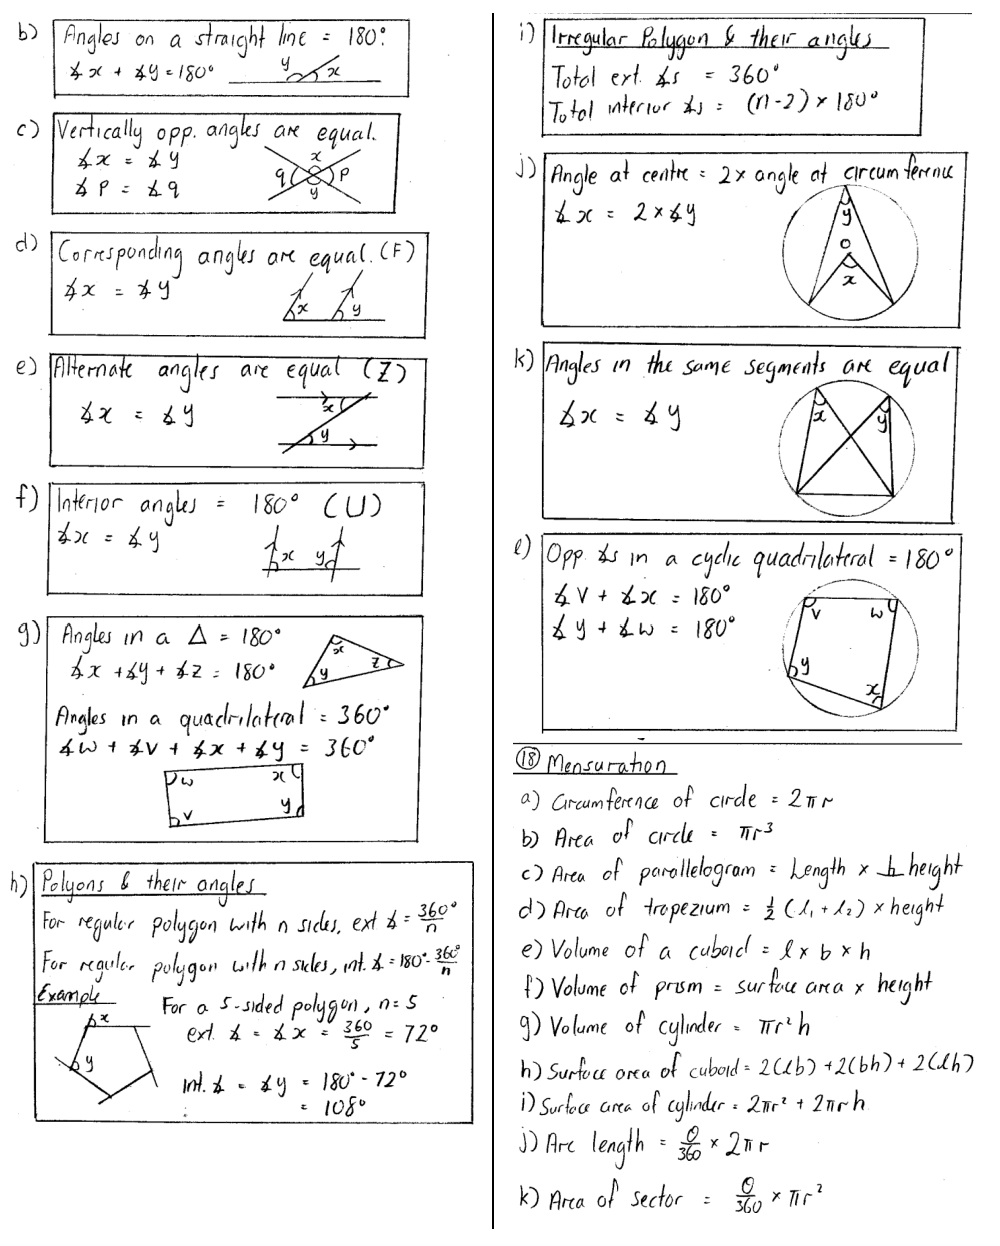 b) Angles on a straight line = 180°.
∡x + ∡y = 180°
y x
c) Vertically opp. angles are equal.
∡x = ∡y
∡p = ∡q
x
q p
y
d) Corresponding angles are equal. (F)
∡x = ∡y
x y
e) Alternate angles are equal (Z)
∡x = ∡y
x
y
f) Interior angles = 180° (U)
∡x = ∡y
x y
g) Angles in a △ = 180°
∡x + ∡y + ∡z = 180°
x
y z
Angles in a quadrilateral = 360°
∡w + ∡v + ∡x + ∡y = 360°
w x
v y
h) Polyons & their angles
For regular polygon with n sides, ext ∡ = 360°/n
For regular polygon with n sides, int. ∡ = 180° - 360°/n
Example
For a 5-sided polygon, n = 5
ext. ∡ = ∡x = 360/5 = 72°
x
y
int. ∡ = ∡y = 180° - 72°
= 108°
i) Irregular Polygon & their angles
Total ext. ∡s = 360°
Total interior ∡s = (n-2) × 180°
j) Angle at centre = 2 × angle at circumference
∡x = 2 × ∡y
y
O
x
k) Angles in the same segments are equal
∡x = ∡y
x y
l) Opp. ∡s in a cyclic quadrilateral = 180°
∡v + ∡x = 180°
∡y + ∡w = 180°
v w
y x
⑱ Mensuration
a) Circumference of circle = 2πr
b) Area of circle = πr³
c) Area of parallelogram = Length × b height
d) Area of trapezium = ½ (l₁ + l₂) × height
e) Volume of a cuboid = l × b × h
f) Volume of prism = surface area × height
g) Volume of cylinder = πr²h
h) Surface area of cuboid = 2(lb) + 2(bh) + 2(lh)
i) Surface area of cylinder = 2πr² + 2πrh
j) Arc length = θ/360 × 2πr
k) Area of sector = θ/360 × πr²